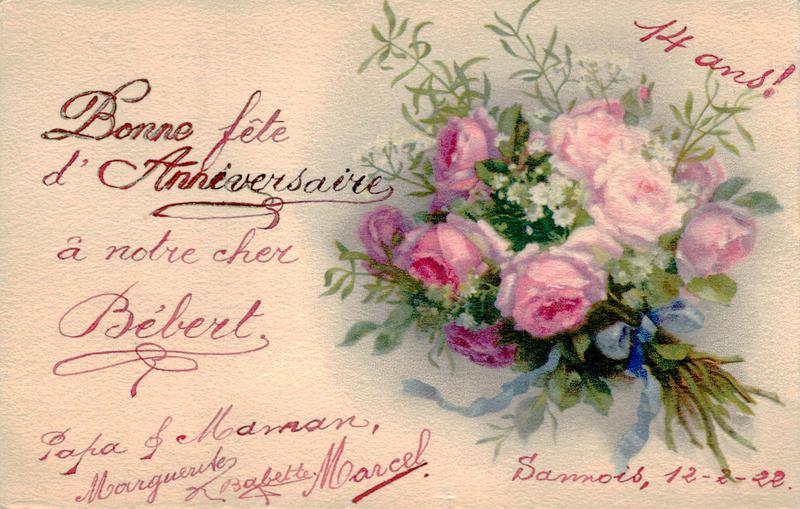 14 ans!
Bonne fête
d'Anniversaire
à notre cher
Bébert.
Papa & Maman,
Marguerite Babette Marcel.
Sannois, 12-2-22.